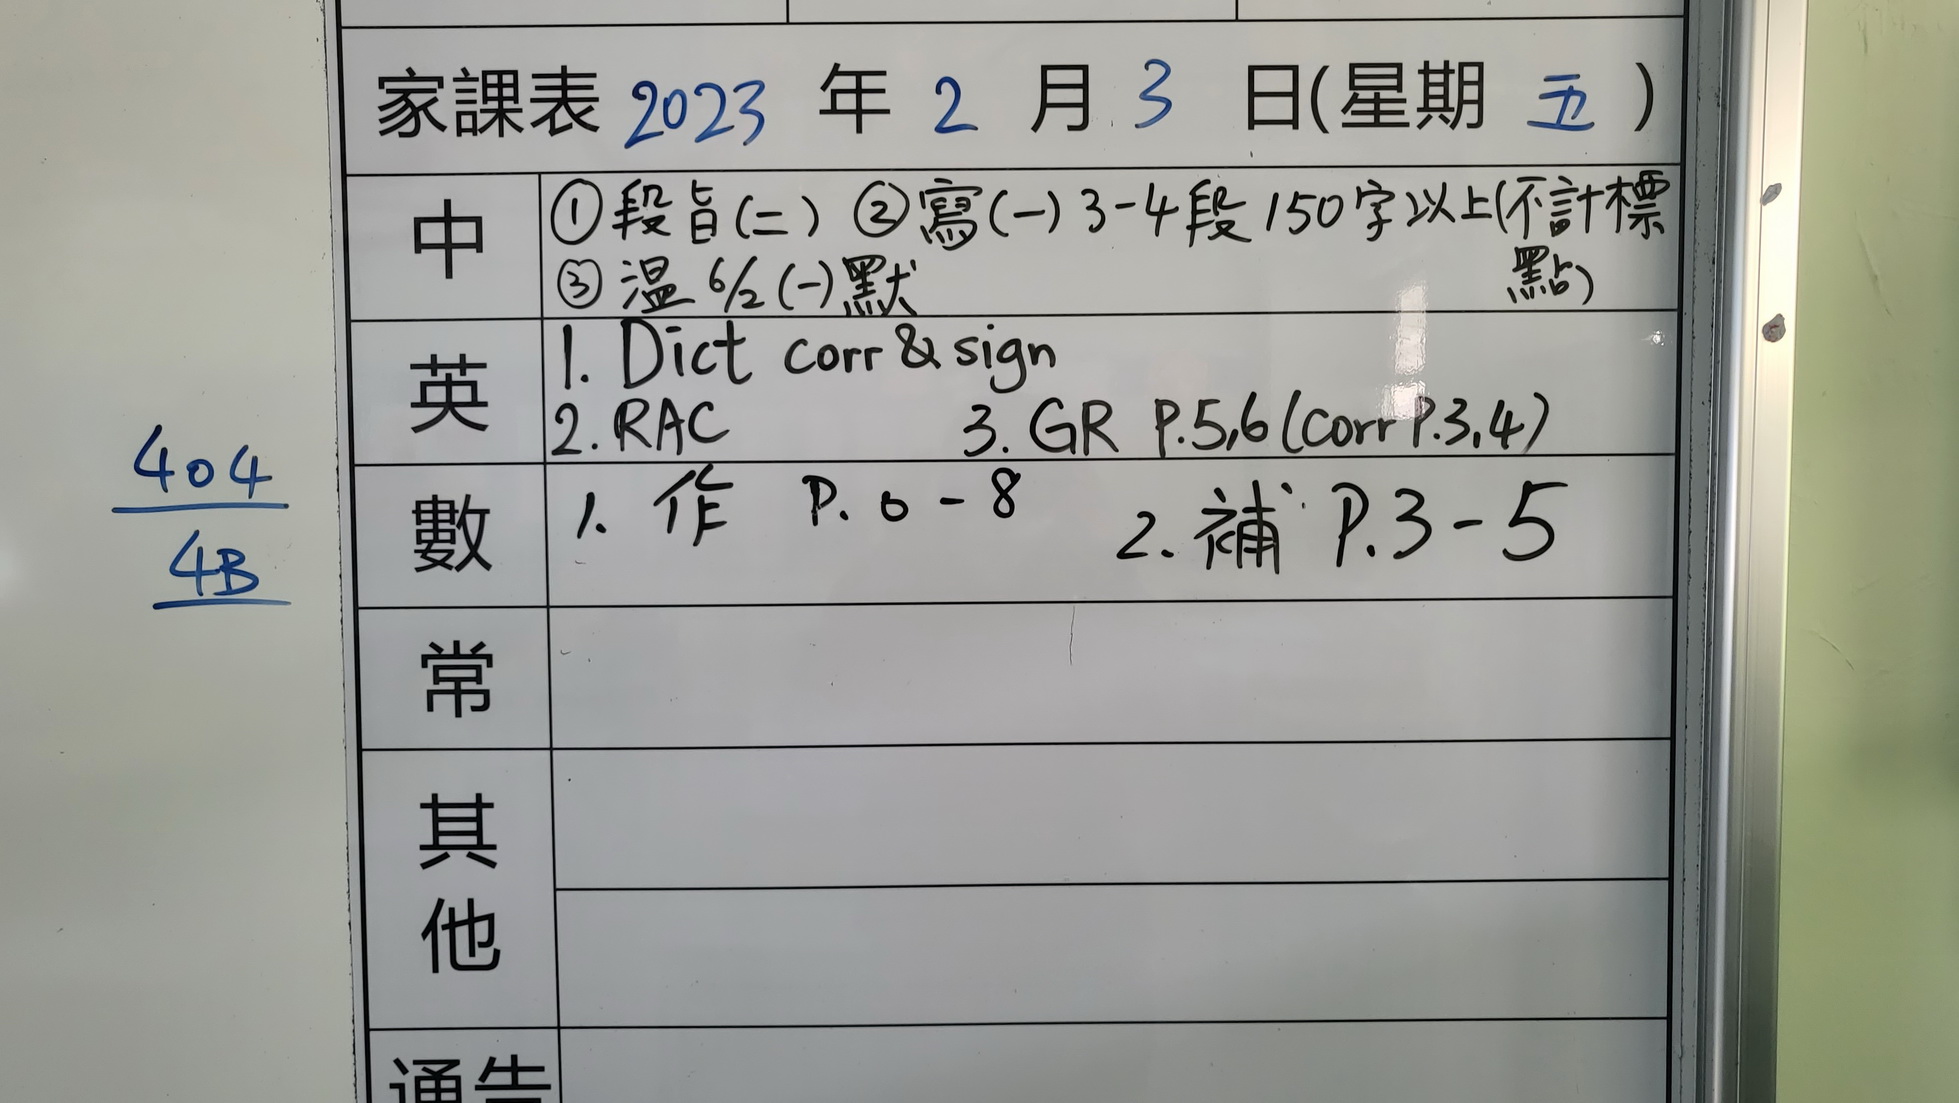 家課表 2023 年 2 月 3 日(星期 五 )
中
①段旨(二) ②寫(一) 3-4段150字以上(不計標
點)
③溫 6/2 (一)默
英
1. Dict corr & sign
2. RAC 3. GR P.5,6 (corr P.3,4)
數
1. 作 P. 6 - 8 2. 補 P.3-5
404
4B
常
其
他
通告